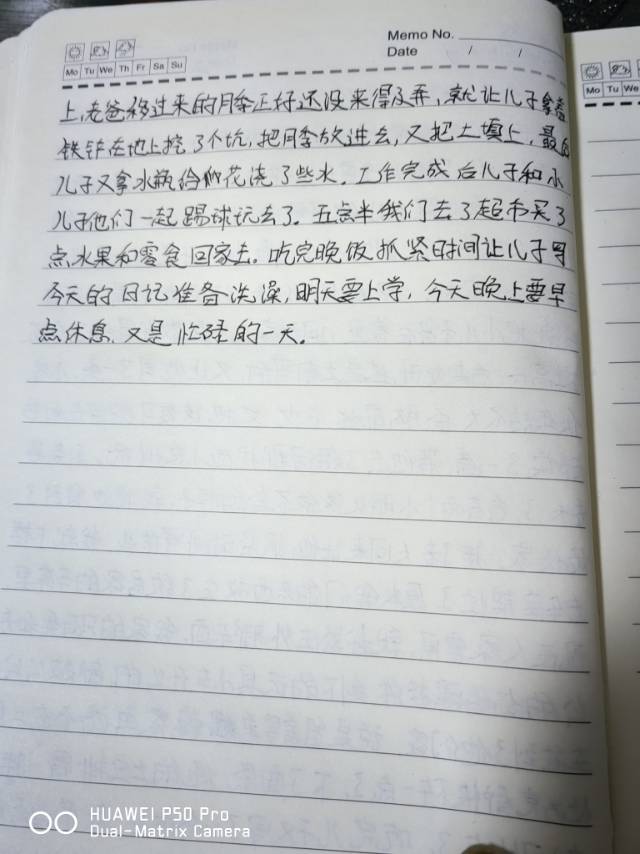 Memo No.
Date / /
Mo Tu We Th Fr Sa Su
Mo Tu We
上,老爸移过来的月季正好还没来得及弄,就让儿子拿着
铁锹在地上挖了个坑,把月季放进去,又把土填上,最后
儿子又拿水瓶给月季花浇了些水。工作完成后儿子和小
儿子他们一起踢球玩去了。五点半我们去了超市买了
点水果和零食回家去。吃完晚饭抓紧时间让儿子写
今天的日记准备洗澡,明天要上学,今天晚上要早
点休息,又是忙碌的一天。
HUAWEI P50 Pro
Dual-Matrix Camera